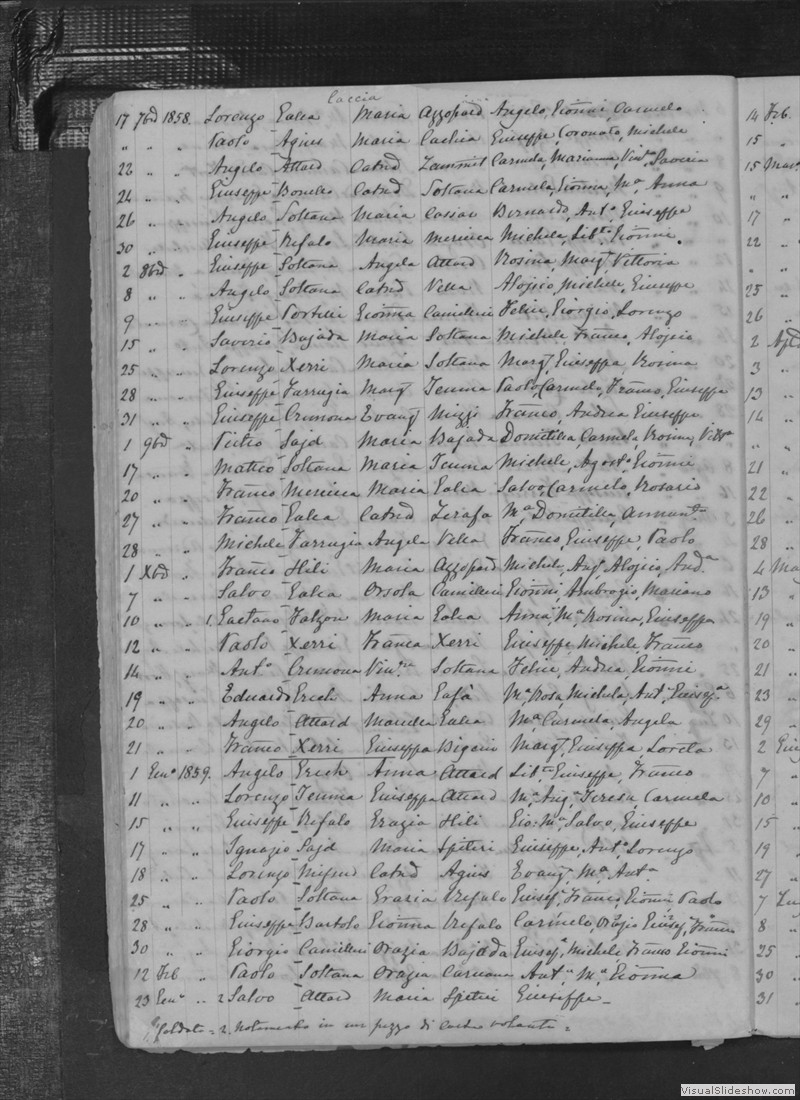 Caccia
17 7bd 1858. Lorenzo Galea Maria Azzopard Angelo, Gionni, Carmela
" " " Paolo Agius Maria Giuseppe, Coronato, Michele
22 " " Angelo Attard Catrid Zammit Carmela, Marianna, Vinc. Saveria
24 " " Giuseppe Bonello Catrid Soltana Carmela, Gionna, Ma Anna
26 " " Angelo Soltana Maria Cassar Bernardo, Anto Giuseppe
30 " " Giuseppe Refalo Maria Mercieca Michele, Libo Gionni.
2 8bd " Giuseppe Soltana Angela Attard Rosina, Marg Vittoria
8 " " Angelo Soltana Catrid Vella Alojsio, Michele, Giuseppe
9 " " Giuseppe Portelli Gionna Camilleri Felice, Giorgio, Lorenzo
15 " " Saverio Bajada Maria Soltana Michele Franco, Alojsio
25 " " Lorenzo Xerri Maria Soltana Marg, Giuseppa, Rosina
28 " " Giuseppe Farrugia Marg Tewma Paolo, Carmelo, Franco, Giuseppa
31 " " Giuseppe Cremona Evang Mizzi Franco, Andrea Giuseppe
1 9bd " Pietro Sajd Maria Bajada Domitilla, Carmela, Rosina, Vitta
17 " " Matteo Soltana Maria Tewma Michele, Agosto Gionni
20 " " Franco Mercieca Maria Galea Salvo, Carmelo, Rosario
27 " " Franco Galea Catrid Zerafa Ma Domitilla, Annunta
28 " " Michele Farrugia Angela Vella Franco, Giuseppe, Paolo
1 Xbd " Franco Hili Maria Azzopard Michele, Ang Alojsio, Anda
7 " " Salvo Galea Orsola Camilleri Gionni, Ambrogio, Mariano
10 " " 1. Gaetano Falzon Maria Galea Anna Ma Rosina, Giuseppa
12 " " Paolo Xerri Franca Xerri Giuseppe, Michele, Franco
14 " " Anto Cremona Vinca Soltana Felice, Andrea, Gionni
19 " " Eduardo Grech Anna Gafà Ma Rosa, Michela, Anta Giusepa
20 " " Angelo Attard Galea Ma Carmela, Angela
21 " " Franco Xerri Giuseppa Bigeni Marg, Giuseppa, Loreta
1 Geno 1859. Angelo Grech Anna Attard Liba Giuseppe, Franco
11 " " Lorenzo Tewma Giuseppa Attard Ma Anga Teresa, Carmela
15 " " Giuseppe Refalo Grazia Hili Gio: Ma, Salvo, Giuseppe
17 " " Ignazio Sajd Maria Spiteri Giuseppe, Anto Lorenzo
18 " " Lorenzo Mifsud Catrid Agius Evanga Ma Anta
25 " " Paolo Soltana Grazia Refalo Giusepe, Franco, Gionni Paolo
28 " " Giuseppe Bartolo Gionna Refalo Carmelo, Orazio Giusepe, Franco
30 " " Giorgio Camilleri Orazia Bajada Giusepe, Michele Franco Gionni
12 Feb " Paolo Soltana Orazia Caruana Anta, Ma, Gionna
23 Geno " 2 Salvo Attard Maria Spiteri Giuseppe -
1. Soldato = 2. Notamento in un pezzo di carta volante =
14 Feb.
15 "
15 Mar.
" "
17 "
22 "
" "
25 "
26 "
2
3 "
13 "
14 "
" "
21 "
22 "
26 "
28 "
4 Ma
13 "
19 "
20 "
21 "
23 "
29 "
2 Giu
7 "
10 "
15 "
19 "
27 "
7 Lu
8 "
25 "
30 "
31 "
VisualSlideshow.com